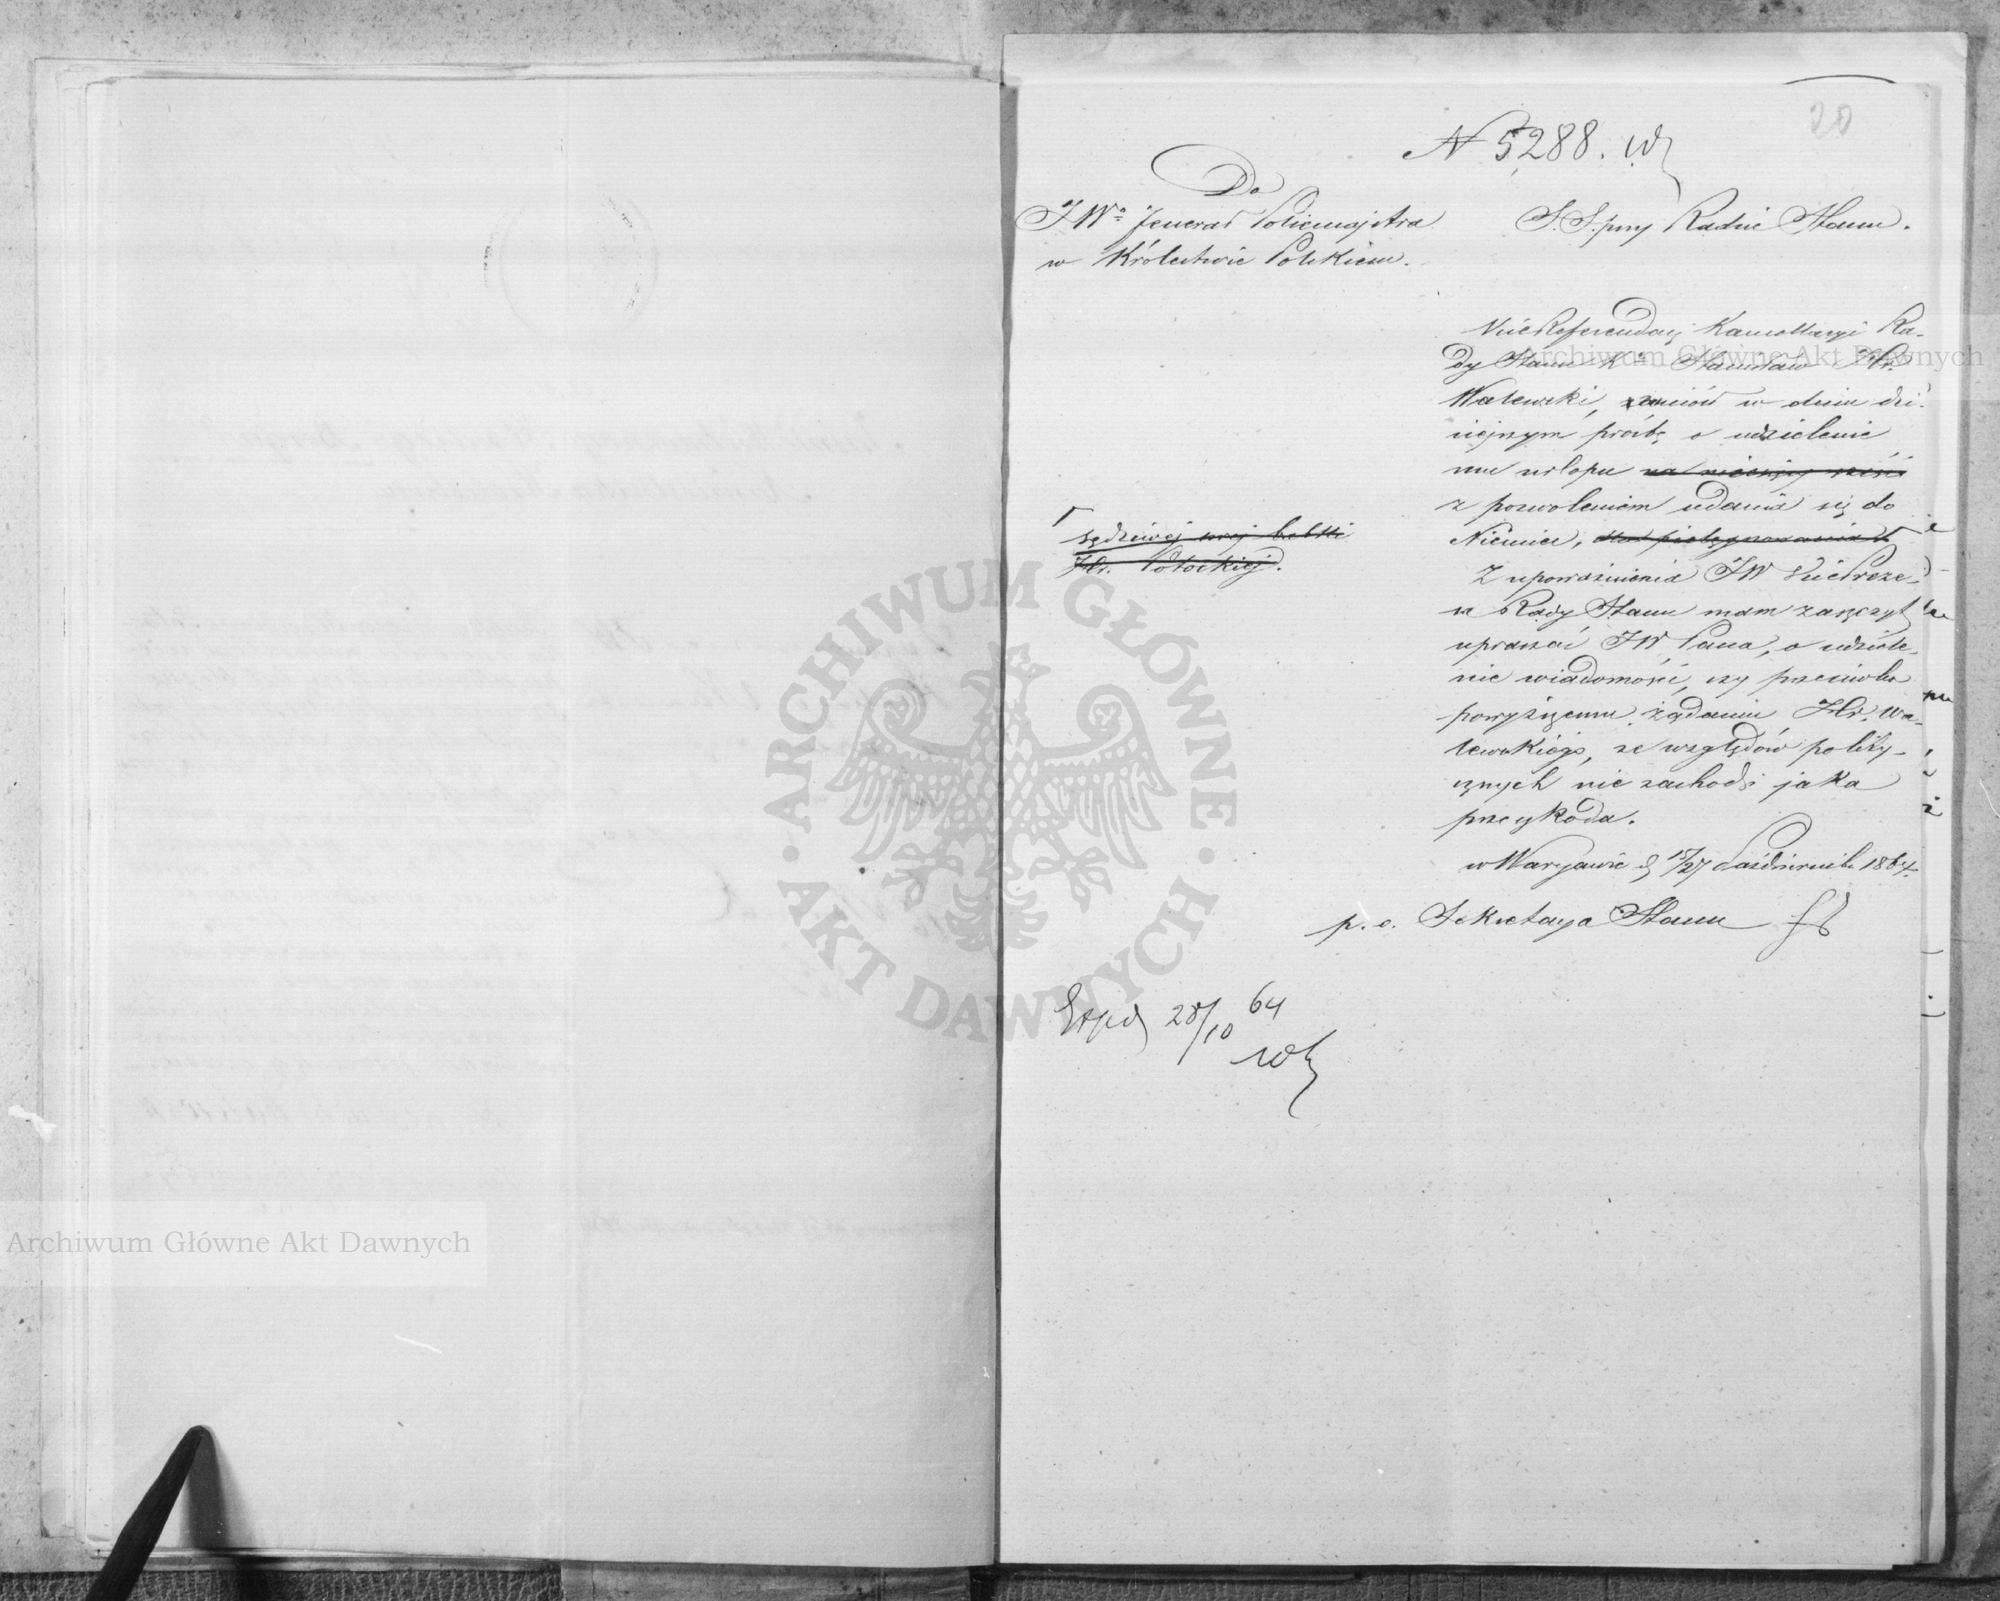 20
N 5,288.
Do
JWo Jenerał Policmajstra
w Królestwie Polskiem.
S. S. przy Radzie Stanu.
ViceReferendarz Kancellaryi Ra-
dy Stanu Stanisław Hr.
Walewski, zaniósł w dniu dzi-
siejszym prośbę o udzielenie
mu urlopu na miesięcy sześć
z pozwoleniem udania się do
Niemiec, dla pielęgnowania
sędziwej swej babki
Hr. Potockiej.
Z upoważnienia JW VicePreze-
sa Rady Stanu mam zaszczyt
upraszać JW Pana, o udziele-
nie wiadomości, czy przeciwko
powyższemu żądaniu Hr. Wa-
lewskiego, ze względów polity-
cznych nie zachodzi jaka
przeszkoda.
w Warszawie d 15/27 Października 1864.
p. o. Sekretarza Stanu
Exped 28/10 64
ARCHIWUM GŁÓWNE
AKT DAWNYCH
Archiwum Główne Akt Dawnych
Archiwum Główne Akt Dawnych